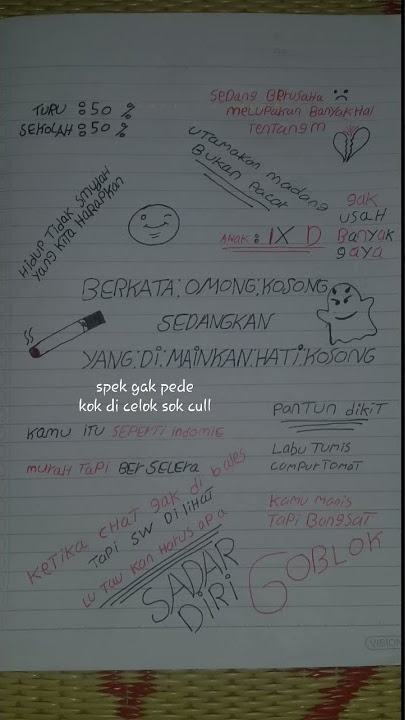 TURU : 50 %
SEKOLAH : 50 %
SEDANG BERUSAHA
MELUPAKAN BANYAK HAI
TENTANG M
UTAMAKAN MADANG
BUKAN PACAR
HIDUP TIDAK SMUJAH
YANG KITA HARAPKAN
ANAK : IX D
gak
USAH
BANYAK
gAYA
BERKATA : OMONG : KOSONG
SEDANGKAN
YANG : DI : MAINKAN : HATI : KOSONG
spek gak pede
kok di celok sok cull
KAMU ITU SEPERTI INDOMIE
MURAH TAPI BERSELERA
PANTUN DIKIT
LABU TUMIS
CAMPUR TOMAT
KAMU MANIS
TAPI BANGSAT
KETIKA CHAT gak di bales
TAPI SW DI LIHAT
LU TAU KAN HARUS APA
SADAR
DIRI
GOBLOK
VISION